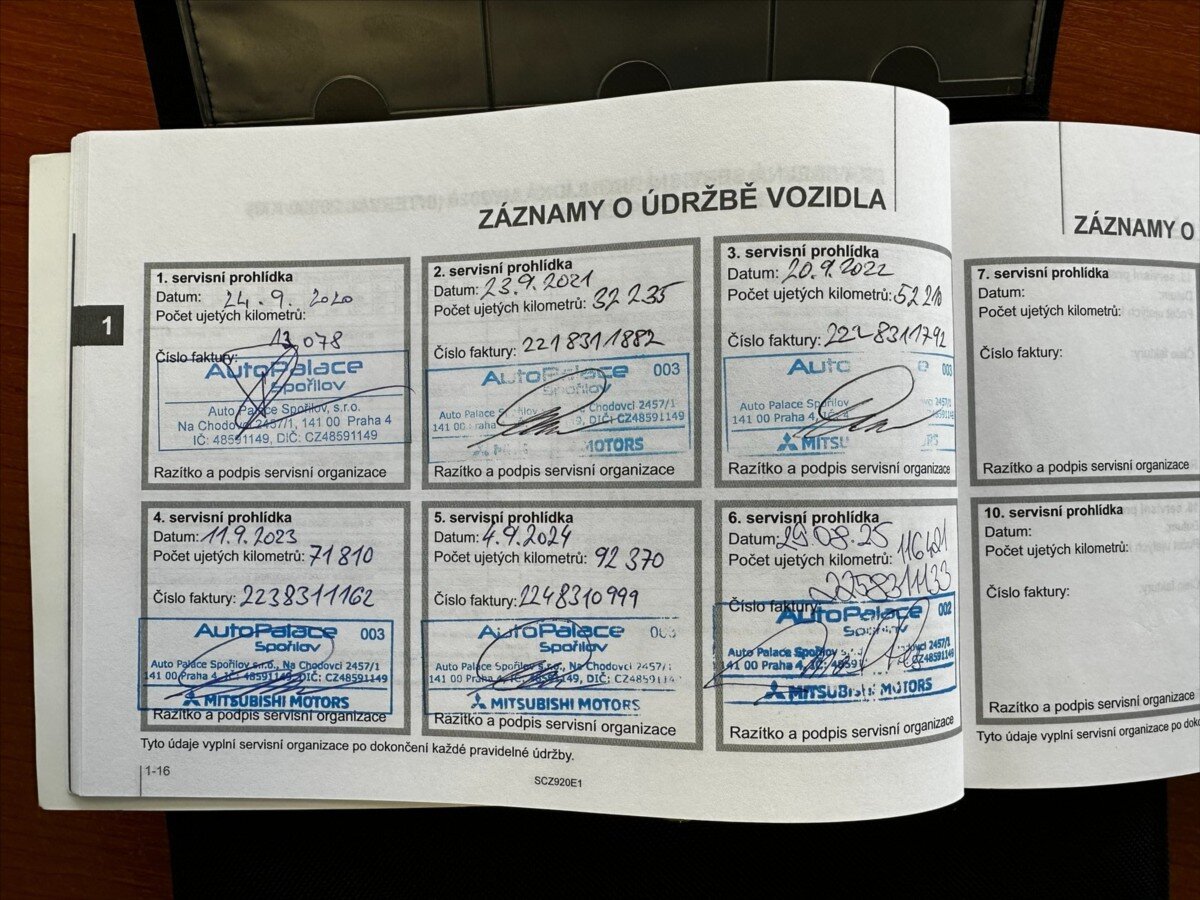 ZÁZNAMY O ÚDRŽBĚ VOZIDLA
1
1. servisní prohlídka
Datum: 24. 9. 2020
Počet ujetých kilometrů:
13 078
Číslo faktury:
AutoPalace
Spořilov
Auto Palace Spořilov, s.r.o.
Na Chodovci 2457/1, 141 00 Praha 4
IČ: 48591149, DIČ: CZ48591149
Razítko a podpis servisní organizace
2. servisní prohlídka
Datum: 23.9.2021
Počet ujetých kilometrů: 32 235
Číslo faktury: 2218311882
AutoPalace 003
Spořilov
Auto Palace Chodovci 2457/1
141 00 Praha DIČ: CZ48591149
MOTORS
Razítko a podpis servisní organizace
3. servisní prohlídka
Datum: 20.9.2022
Počet ujetých kilometrů: 52 210
Číslo faktury: 2228311792
Auto 003
Auto Palace Spořilov 2457/1
141 00 Praha 4, CZ48591149
MITSU
Razítko a podpis servisní organizace
4. servisní prohlídka
Datum: 11.9.2023
Počet ujetých kilometrů: 71 810
Číslo faktury: 2238311162
AutoPalace 003
Spořilov
Auto Palace Spořilov s.r.o., Na Chodovci 2457/1
141 00 Praha 4, IČ: 48591149, DIČ: CZ48591149
MITSUBISHI MOTORS
Razítko a podpis servisní organizace
5. servisní prohlídka
Datum: 4.9.2024
Počet ujetých kilometrů: 92 370
Číslo faktury: 2248310999
AutoPalace
Spořilov
Auto Palace Spořilov s.r.o., Na Chodovci 2457/1
141 00 Praha 4, IČ: 48591149, DIČ: CZ48591149
MITSUBISHI MOTORS
Razítko a podpis servisní organizace
6. servisní prohlídka
Datum: 29.08.25
Počet ujetých kilometrů: 116421
2258311133
Číslo faktury:
AutoPalace 002
Auto Palace 2457/1
141 00 Praha 4, CZ48591149
MITSUBISHI MOTORS
Razítko a podpis servisní organizace
Tyto údaje vyplní servisní organizace po dokončení každé pravidelné údržby.
1-16
SCZ920E1
ZÁZNAMY O
7. servisní prohlídka
Datum:
Počet ujetých kilometrů:
Číslo faktury:
Razítko a podpis servisní organizace
10. servisní prohlídka
Datum:
Počet ujetých kilometrů:
Číslo faktury:
Razítko a podpis servisní organizace
Tyto údaje vyplní servisní organizace po